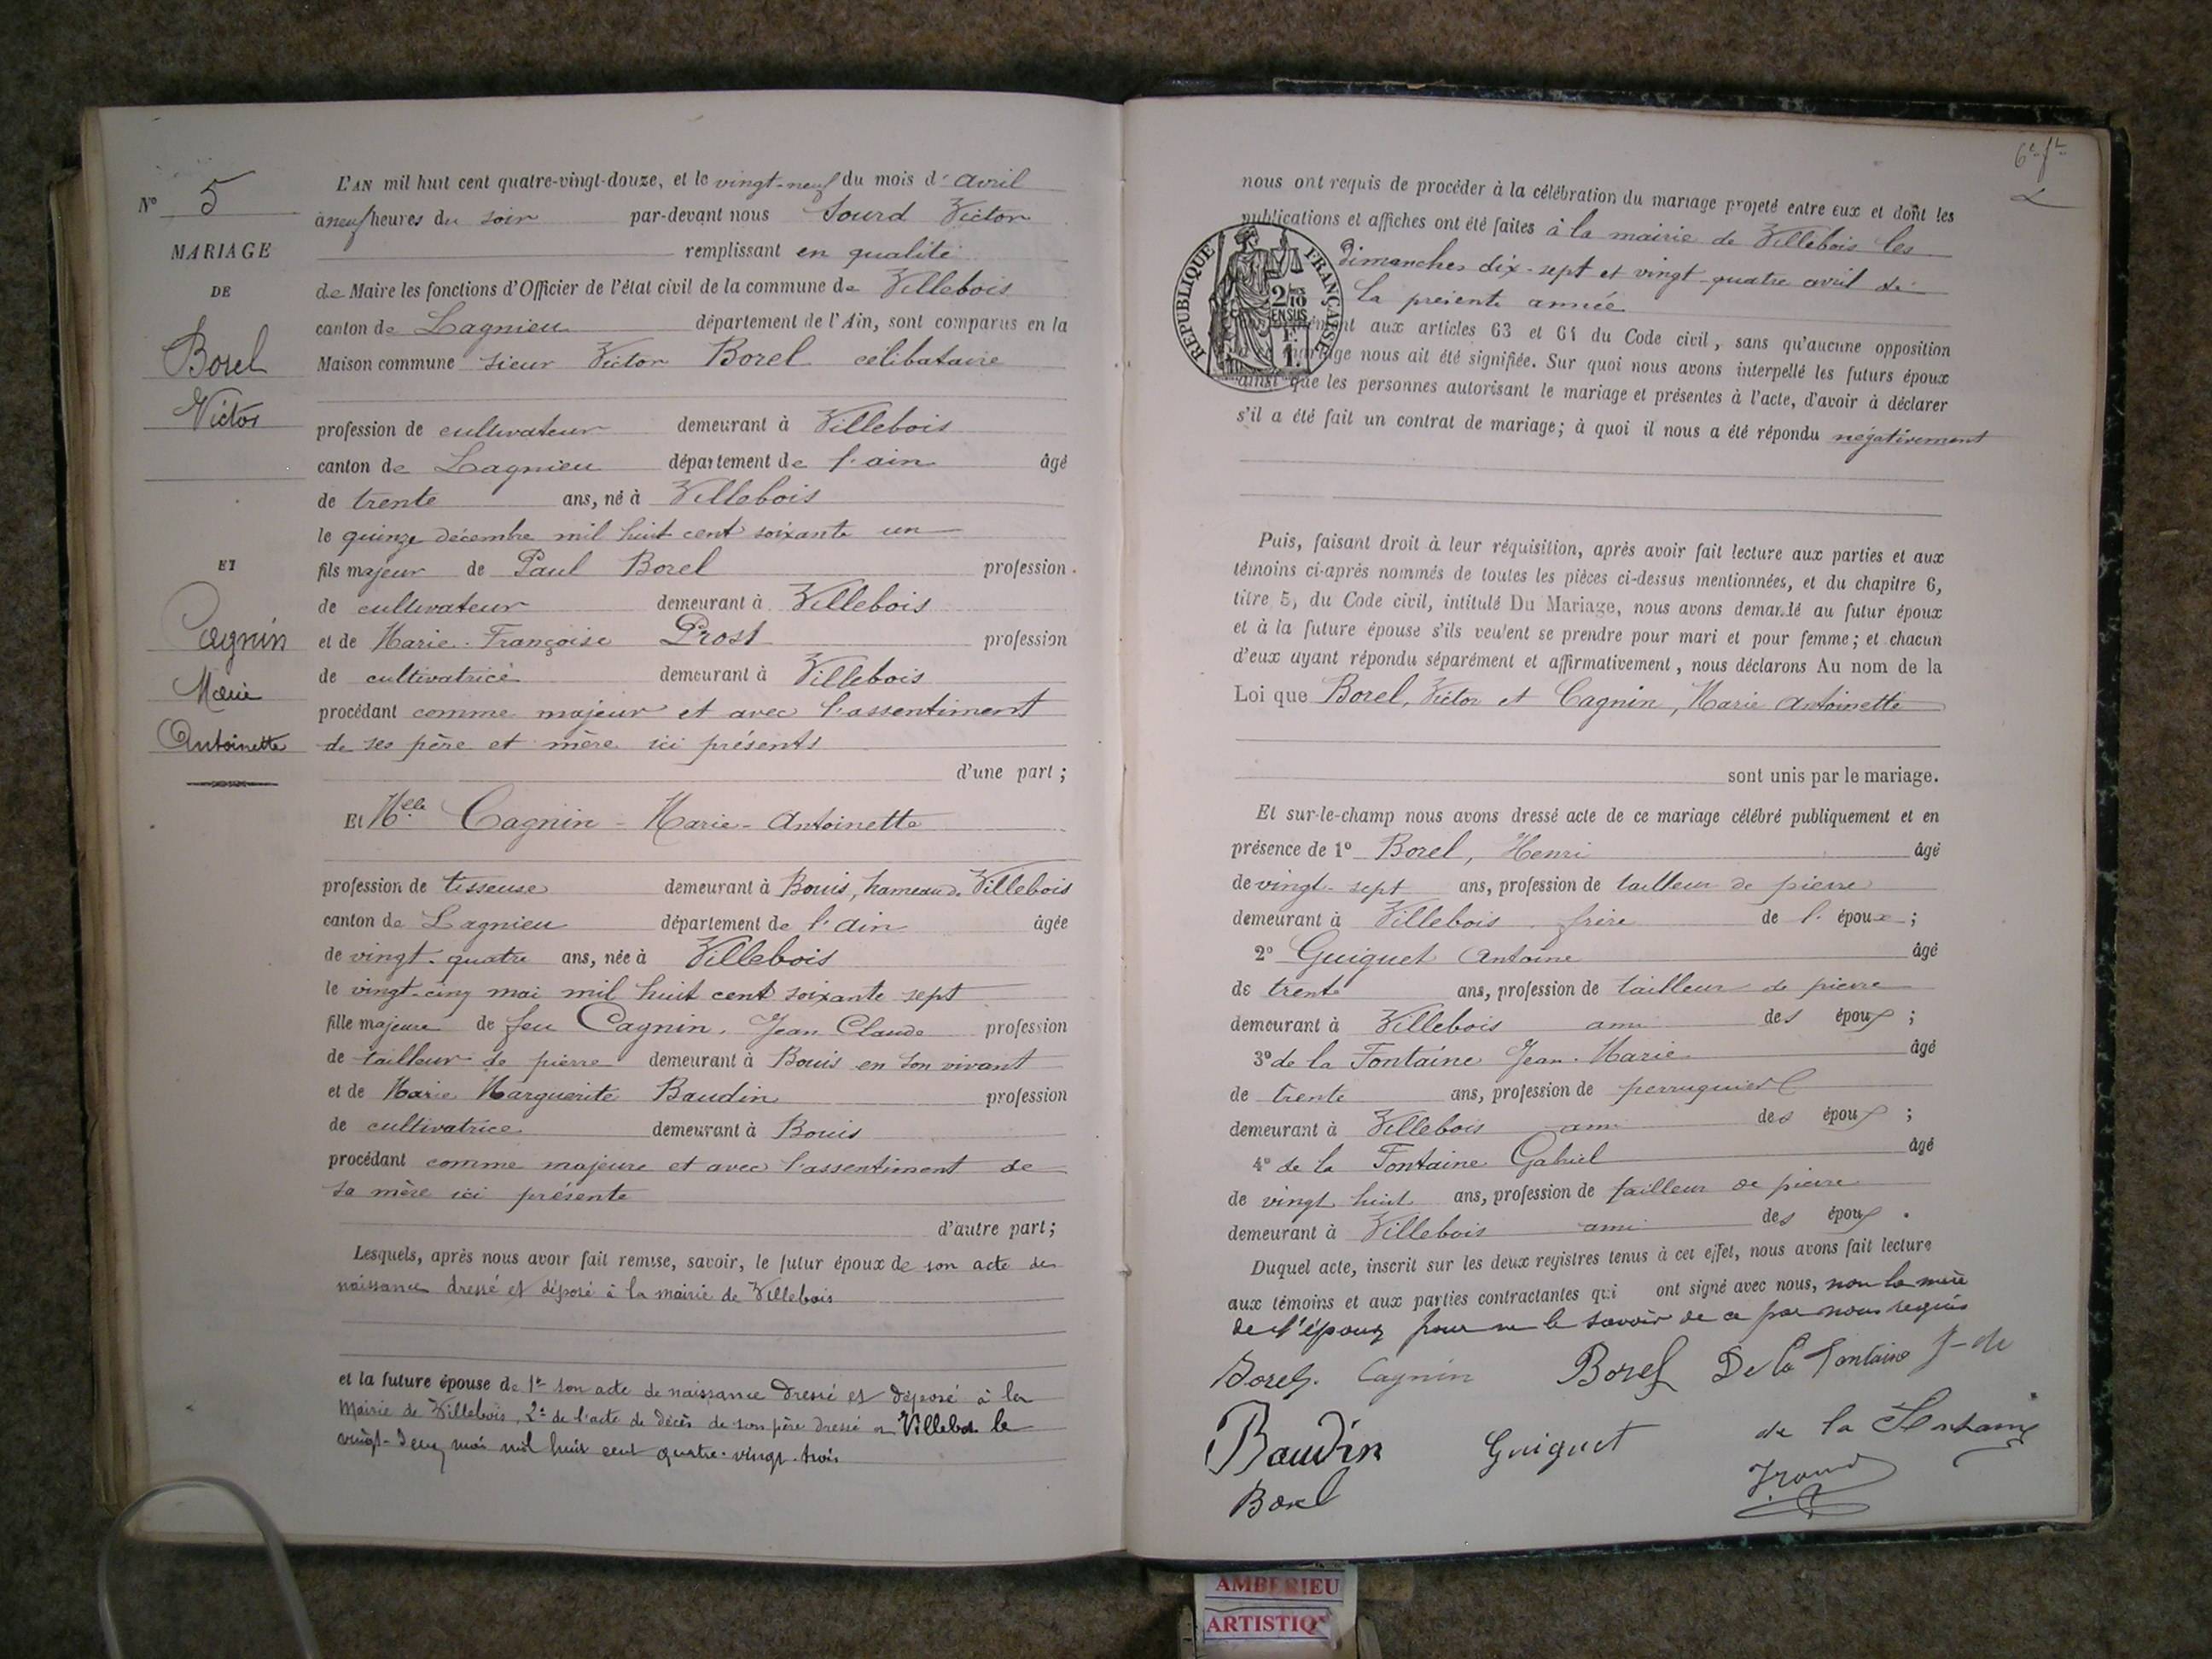 N° 5
MARIAGE
DE
Borel
Victor
ET
Cagnin
Marie
Antoinette
L'AN mil huit cent quatre-vingt-douze, et le vingt-neuf du mois d'avril
à neuf heures du soir par-devant nous Sourd Victor
remplissant en qualité
de Maire les fonctions d'Officier de l'état civil de la commune de Villebois
canton de Lagnieu département de l'Ain, sont comparus en la
Maison commune sieur Victor Borel célibataire
profession de cultivateur demeurant à Villebois
canton de Lagnieu département de l'ain âgé
de trente ans, né à Villebois
le quinze décembre mil huit cent soixante un
fils majeur de Paul Borel profession
de cultivateur demeurant à Villebois
et de Marie-Françoise Prost profession
de cultivatrice demeurant à Villebois
procédant comme majeur et avec l'assentiment
de ses père et mère ici présents
d'une part ;
Et Melle Cagnin - Marie - Antoinette
profession de tisseuse demeurant à Bouis, hameau de Villebois
canton de Lagnieu département de l'Ain âgée
de vingt-quatre ans, née à Villebois
le vingt-cinq mai mil huit cent soixante sept
fille majeure de feu Cagnin, Jean Claude profession
de tailleur de pierre demeurant à Bouis en son vivant
et de Marie Marguerite Baudin profession
de cultivatrice demeurant à Bouis
procédant comme majeure et avec l'assentiment de
sa mère ici présente
d'autre part ;
Lesquels, après nous avoir fait remise, savoir, le futur époux de son acte de
naissance dressé et déposé à la mairie de Villebois
et la future épouse de 1° son acte de naissance dressé et déposé à la
Mairie de Villebois, 2° de l'acte de décès de son père dressé à Villebois le
vingt-deux mai mil huit cent quatre-vingt-trois
6e ft
nous ont requis de procéder à la célébration du mariage projeté entre eux et dont les
publications et affiches ont été faites à la mairie de Villebois les
dimanches dix-sept et vingt-quatre avril de
la présente année
RÉPUBLIQUE FRANÇAISE
2/10 EN SUS
1 F.
aux articles 63 et 64 du Code civil, sans qu'aucune opposition
mariage nous ait été signifiée. Sur quoi nous avons interpellé les futurs époux
ainsi que les personnes autorisant le mariage et présentes à l'acte, d'avoir à déclarer
s'il a été fait un contrat de mariage ; à quoi il nous a été répondu négativement
Puis, faisant droit à leur réquisition, après avoir fait lecture aux parties et aux
témoins ci-après nommés de toutes les pièces ci-dessus mentionnées, et du chapitre 6,
titre 5, du Code civil, intitulé Du Mariage, nous avons demandé au futur époux
et à la future épouse s'ils veulent se prendre pour mari et pour femme ; et chacun
d'eux ayant répondu séparément et affirmativement, nous déclarons Au nom de la
Loi que Borel, Victor et Cagnin, Marie Antoinette
sont unis par le mariage.
Et sur-le-champ nous avons dressé acte de ce mariage célébré publiquement et en
présence de 1° Borel, Henri âgé
de vingt-sept ans, profession de tailleur de pierre
demeurant à Villebois frère de l'époux ;
2° Guiguet Antoine âgé
de trente ans, profession de tailleur de pierre
demeurant à Villebois ami des époux ;
3° de la Fontaine Jean-Marie âgé
de trente ans, profession de perruquier
demeurant à Villebois ami des époux ;
4° de la Fontaine Gabriel âgé
de vingt huit ans, profession de tailleur de pierre
demeurant à Villebois ami des époux.
Duquel acte, inscrit sur les deux registres tenus à cet effet, nous avons fait lecture
aux témoins et aux parties contractantes qui ont signé avec nous, non la mère
de l'époux pour ne le savoir de ce par nous requis
Borel. Cagnin Borel De la Fontaine
Baudin Guiguet de la Fontaine
Borel
AMBERIEU
ARTISTIQ